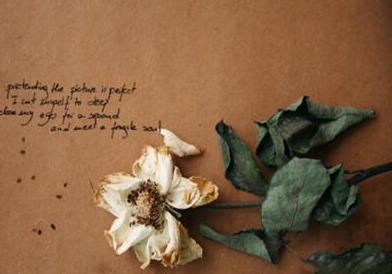 pretending the picture is perfect
I cut myself to sleep
close my eyes for a second
and meet a fragile soul